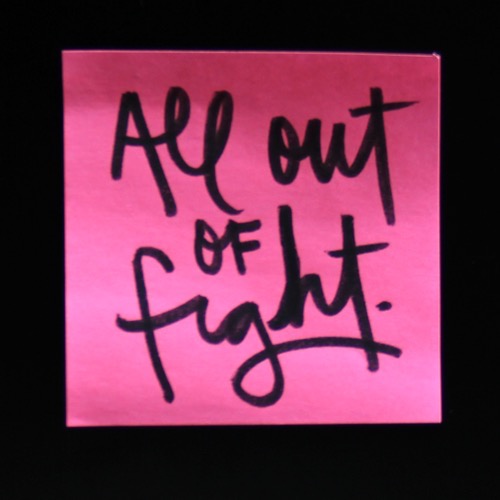 All out
OF
fight.